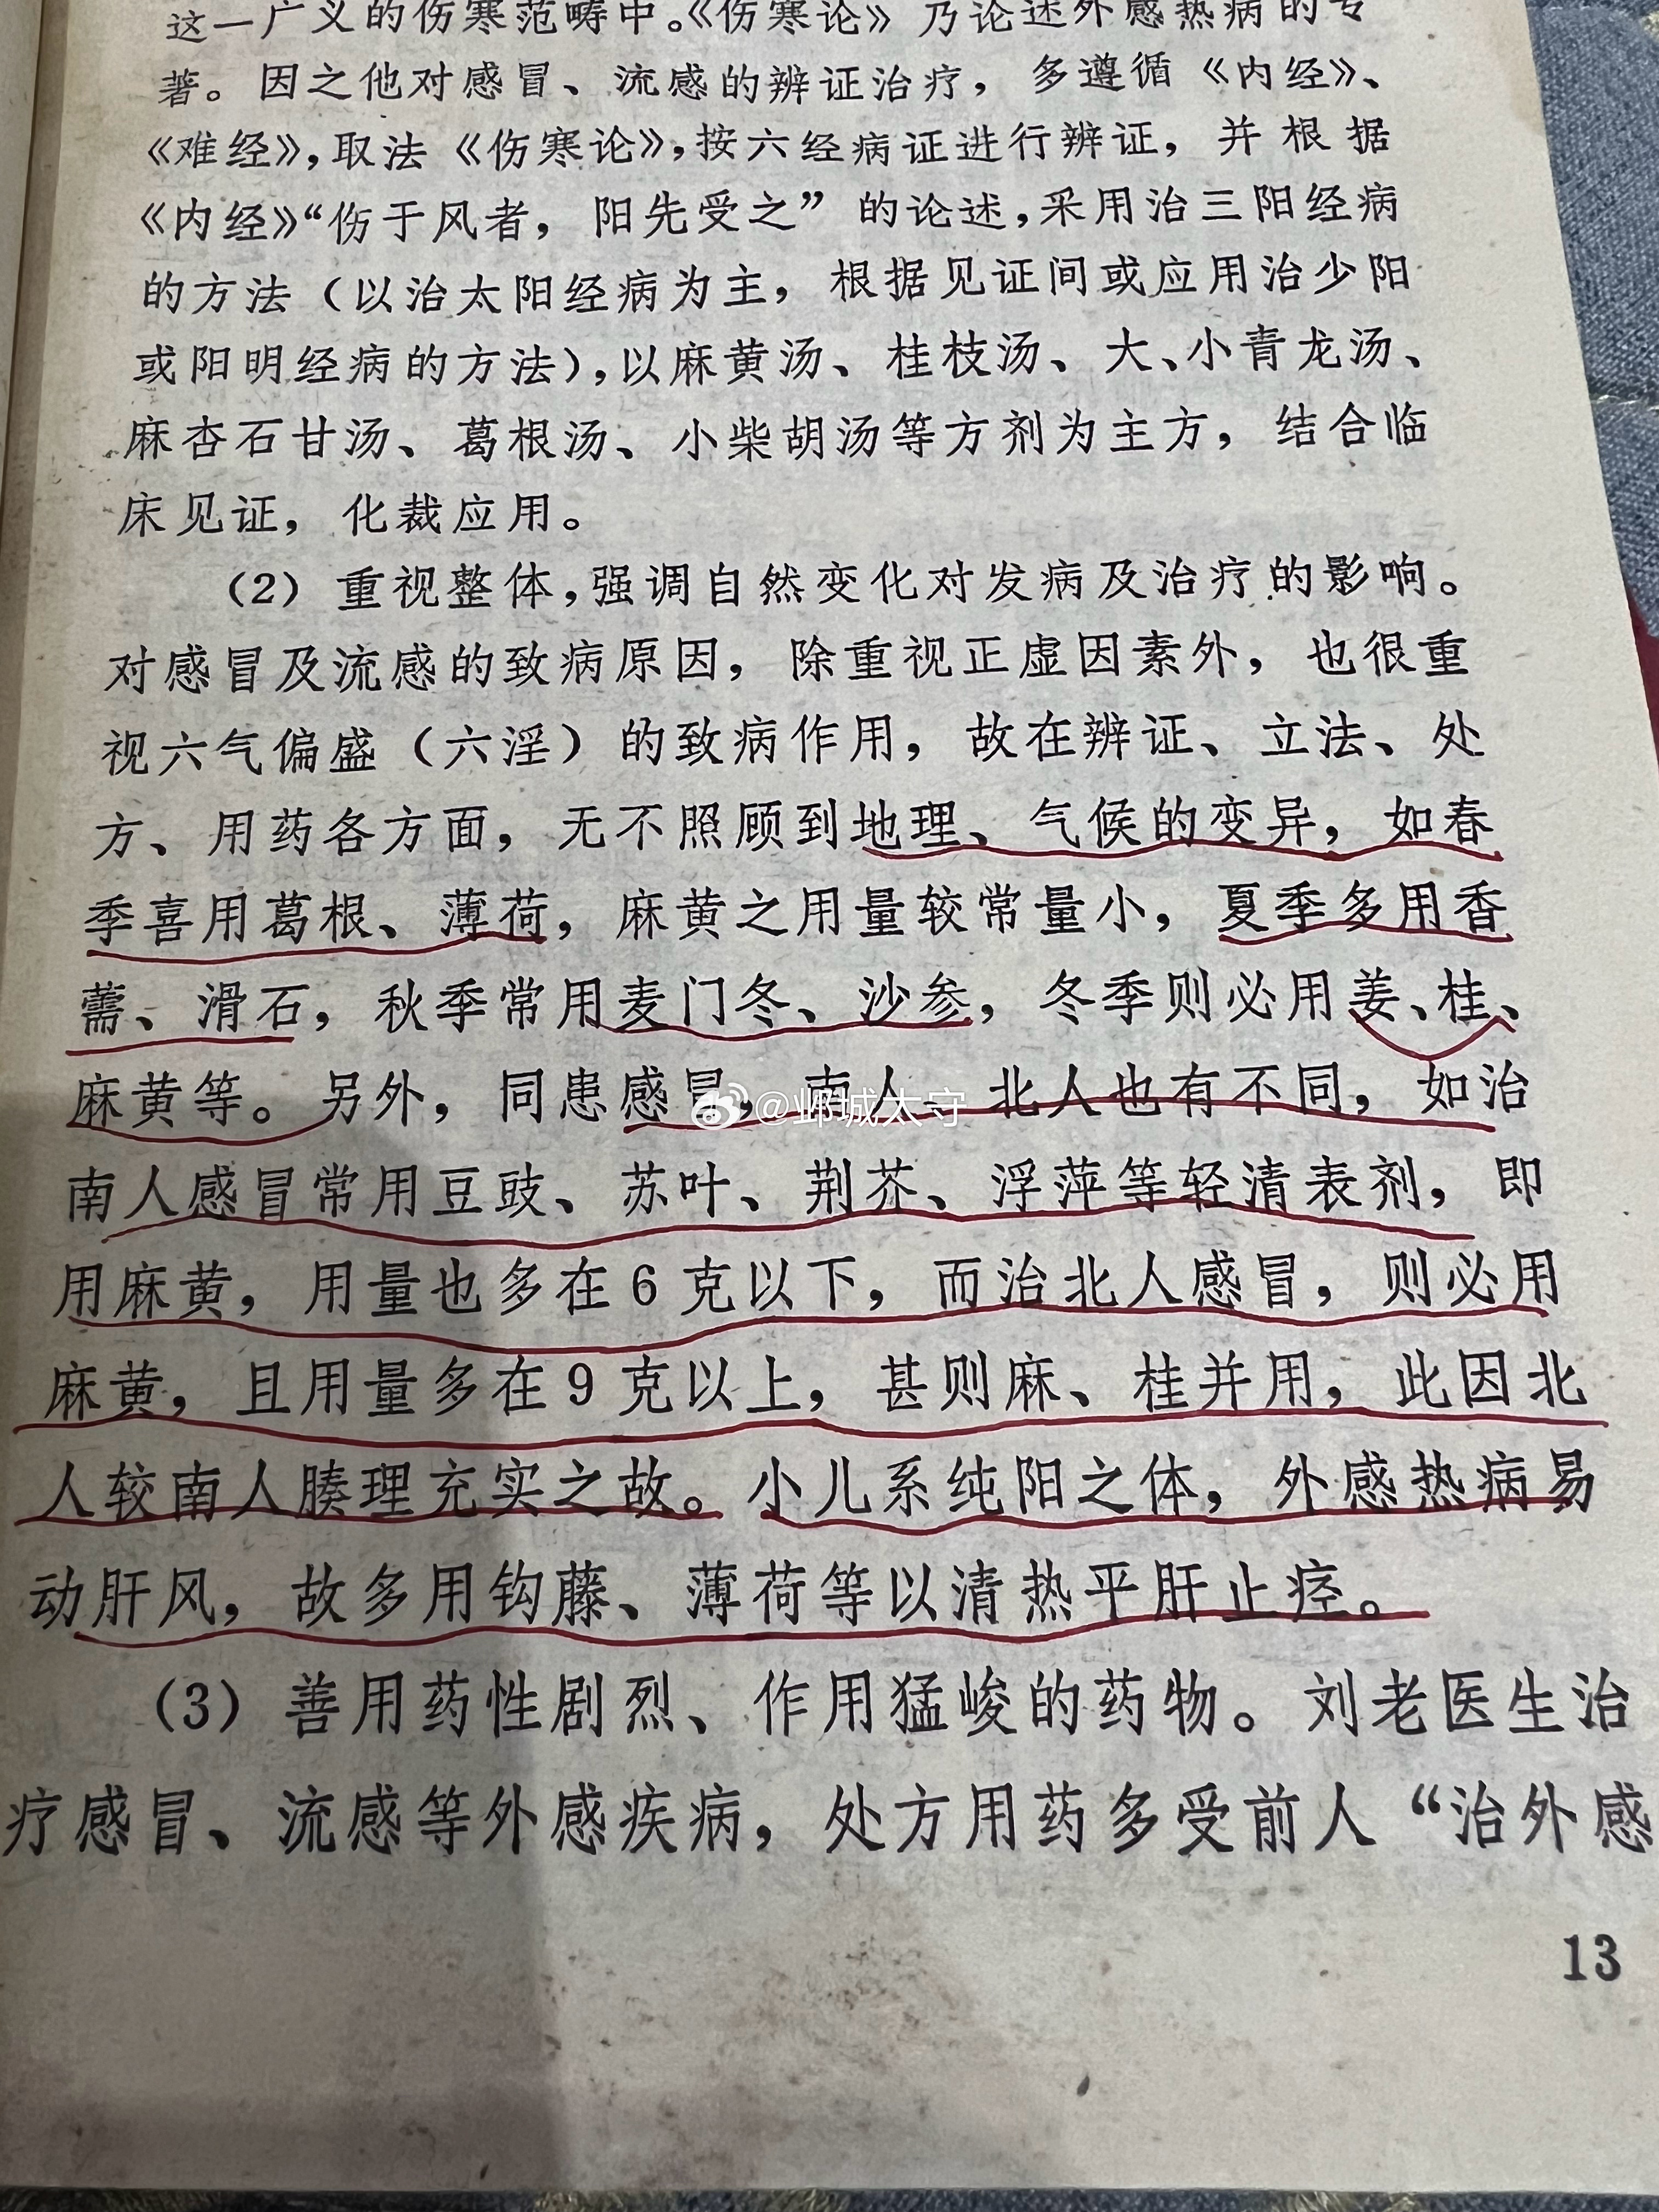 这一广义的伤寒范畴中。《伤寒论》乃论述外感热病的专
著。因之他对感冒、流感的辨证治疗，多遵循《内经》、
《难经》，取法《伤寒论》，按六经病证进行辨证，并根据
《内经》“伤于风者，阳先受之”的论述，采用治三阳经病
的方法（以治太阳经病为主，根据见证间或应用治少阳
或阳明经病的方法），以麻黄汤、桂枝汤、大、小青龙汤、
麻杏石甘汤、葛根汤、小柴胡汤等方剂为主方，结合临
床见证，化裁应用。
（2）重视整体，强调自然变化对发病及治疗的影响。
对感冒及流感的致病原因，除重视正虚因素外，也很重
视六气偏盛（六淫）的致病作用，故在辨证、立法、处
方、用药各方面，无不照顾到地理、气候的变异，如春
季喜用葛根、薄荷，麻黄之用量较常量小，夏季多用香
薷、滑石，秋季常用麦门冬、沙参，冬季则必用姜、桂、
麻黄等。另外，同患感冒，南人、北人也有不同，如治
@邺城太守
南人感冒常用豆豉、苏叶、荆芥、浮萍等轻清表剂，即
用麻黄，用量也多在6克以下，而治北人感冒，则必用
麻黄，且用量多在9克以上，甚则麻、桂并用，此因北
人较南人腠理充实之故。小儿系纯阳之体，外感热病易
动肝风，故多用钩藤、薄荷等以清热平肝止痉。
（3）善用药性剧烈、作用猛峻的药物。刘老医生治
疗感冒、流感等外感疾病，处方用药多受前人“治外感
13